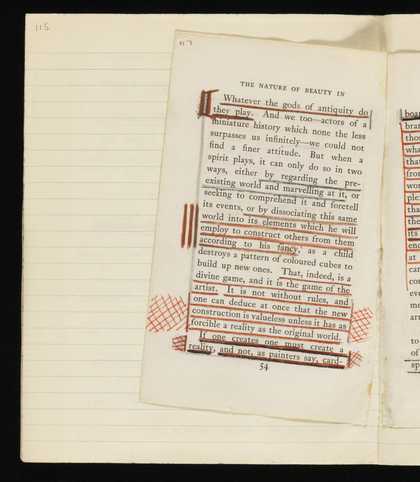 115
117
THE NATURE OF BEAUTY IN
Whatever the gods of antiquity do
they play. And we too—actors of a
miniature history which none the less
surpasses us infinitely—we could not
find a finer attitude. But when a
spirit plays, it can only do so in two
ways, either by regarding the pre-
existing world and marvelling at it, or
seeking to comprehend it and foretell
its events, or by dissociating this same
world into its elements which he will
employ to construct others from them
according to his fancy, as a child
destroys a pattern of coloured cubes to
build up new ones. That, indeed, is a
divine game, and it is the game of the
artist. It is not without rules, and
one can deduce at once that the new
construction is valueless unless it has as
forcible a reality as the original world.
If one creates one must create a
reality, and not, as painters say, card-
54
boar
bran
thou
wha
that
fron
wor
ple
tha
the
its
end
at
car
cor
eve
me
art
to
of
sp